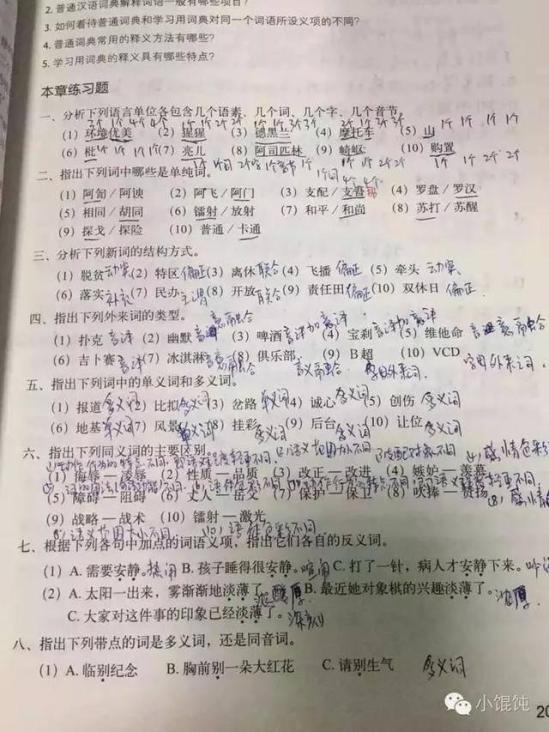 2. 普通汉语词典解释词语一般有哪些项目？
3. 如何看待普通词典和学习用词典对同一个词语所设义项的不同？
4. 普通词典常用的释义方法有哪些？
5. 学习用词典的释义具有哪些特点？
本章练习题
一、分析下列语言单位各包含几个语素、几个词、几个字、几个音节。
(1) 环境优美 (2) 猩猩 (3) 德黑兰 (4) 摩托车 (5) 山
(6) 枇 (7) 亮儿 (8) 阿司匹林 (9) 崎岖 (10) 购置
二、指出下列词中哪些是单纯词。
(1) 阿訇 / 阿谀 (2) 阿飞 / 阿门 (3) 支配 / 支 (4) 罗盘 / 罗汉
(5) 相同 / 胡同 (6) 镭射 / 放射 (7) 和平 / 和尚 (8) 苏打 / 苏醒
(9) 探戈 / 探险 (10) 普通 / 卡通
三、分析下列新词的结构方式。
(1) 脱贫 动宾 (2) 特区 偏正 (3) 离休 联合 (4) 飞播 偏正 (5) 牵头 动宾
(6) 落实 补充 (7) 民办 主谓 (8) 开放 联合 (9) 责任田 偏正 (10) 双休日 偏正
四、指出下列外来词的类型。
(1) 扑克 音译 (2) 幽默 (3) 啤酒 音译加意译 (4) 宝刹 (5) 维他命
(6) 吉卜赛 音译 (7) 冰淇淋 (8) 俱乐部 (9) B超 (10) VCD 字母外来词
五、指出下列词中的单义词和多义词。
(1) 报道 多义词 (2) 比拟 多义词 (3) 岔路 单义词 (4) 诚心 多义词 (5) 创伤 多义词
(6) 地基 (7) 风景 (8) 挂彩 多义词 (9) 后台 多义词 (10) 让位 多义词
六、指出下列同义词的主要区别。
(1) 侮辱 — 凌辱 (2) 性质 — 品质 (3) 改正 — 改进 (4) 嫉妒 — 羡慕
(5) 障碍 — 阻碍 (6) 丈人 — 岳父 (7) 保护 — 保卫 (8) 吹捧 — 赞扬
(9) 战略 — 战术 (10) 镭射 — 激光
七、根据下列各句中加点的词语义项，指出它们各自的反义词。
(1) A. 需要安静。 B. 孩子睡得很安静。吵闹 C. 打了一针，病人才安静下来。
(2) A. 太阳一出来，雾渐渐地淡薄了。 B. 最近她对象棋的兴趣淡薄了。浓厚
C. 大家对这件事的印象已经淡薄了。深刻
八、指出下列带点的词是多义词，还是同音词。
(1) A. 临别纪念 B. 胸前别一朵大红花 C. 请别生气 多义词
小馄饨
20